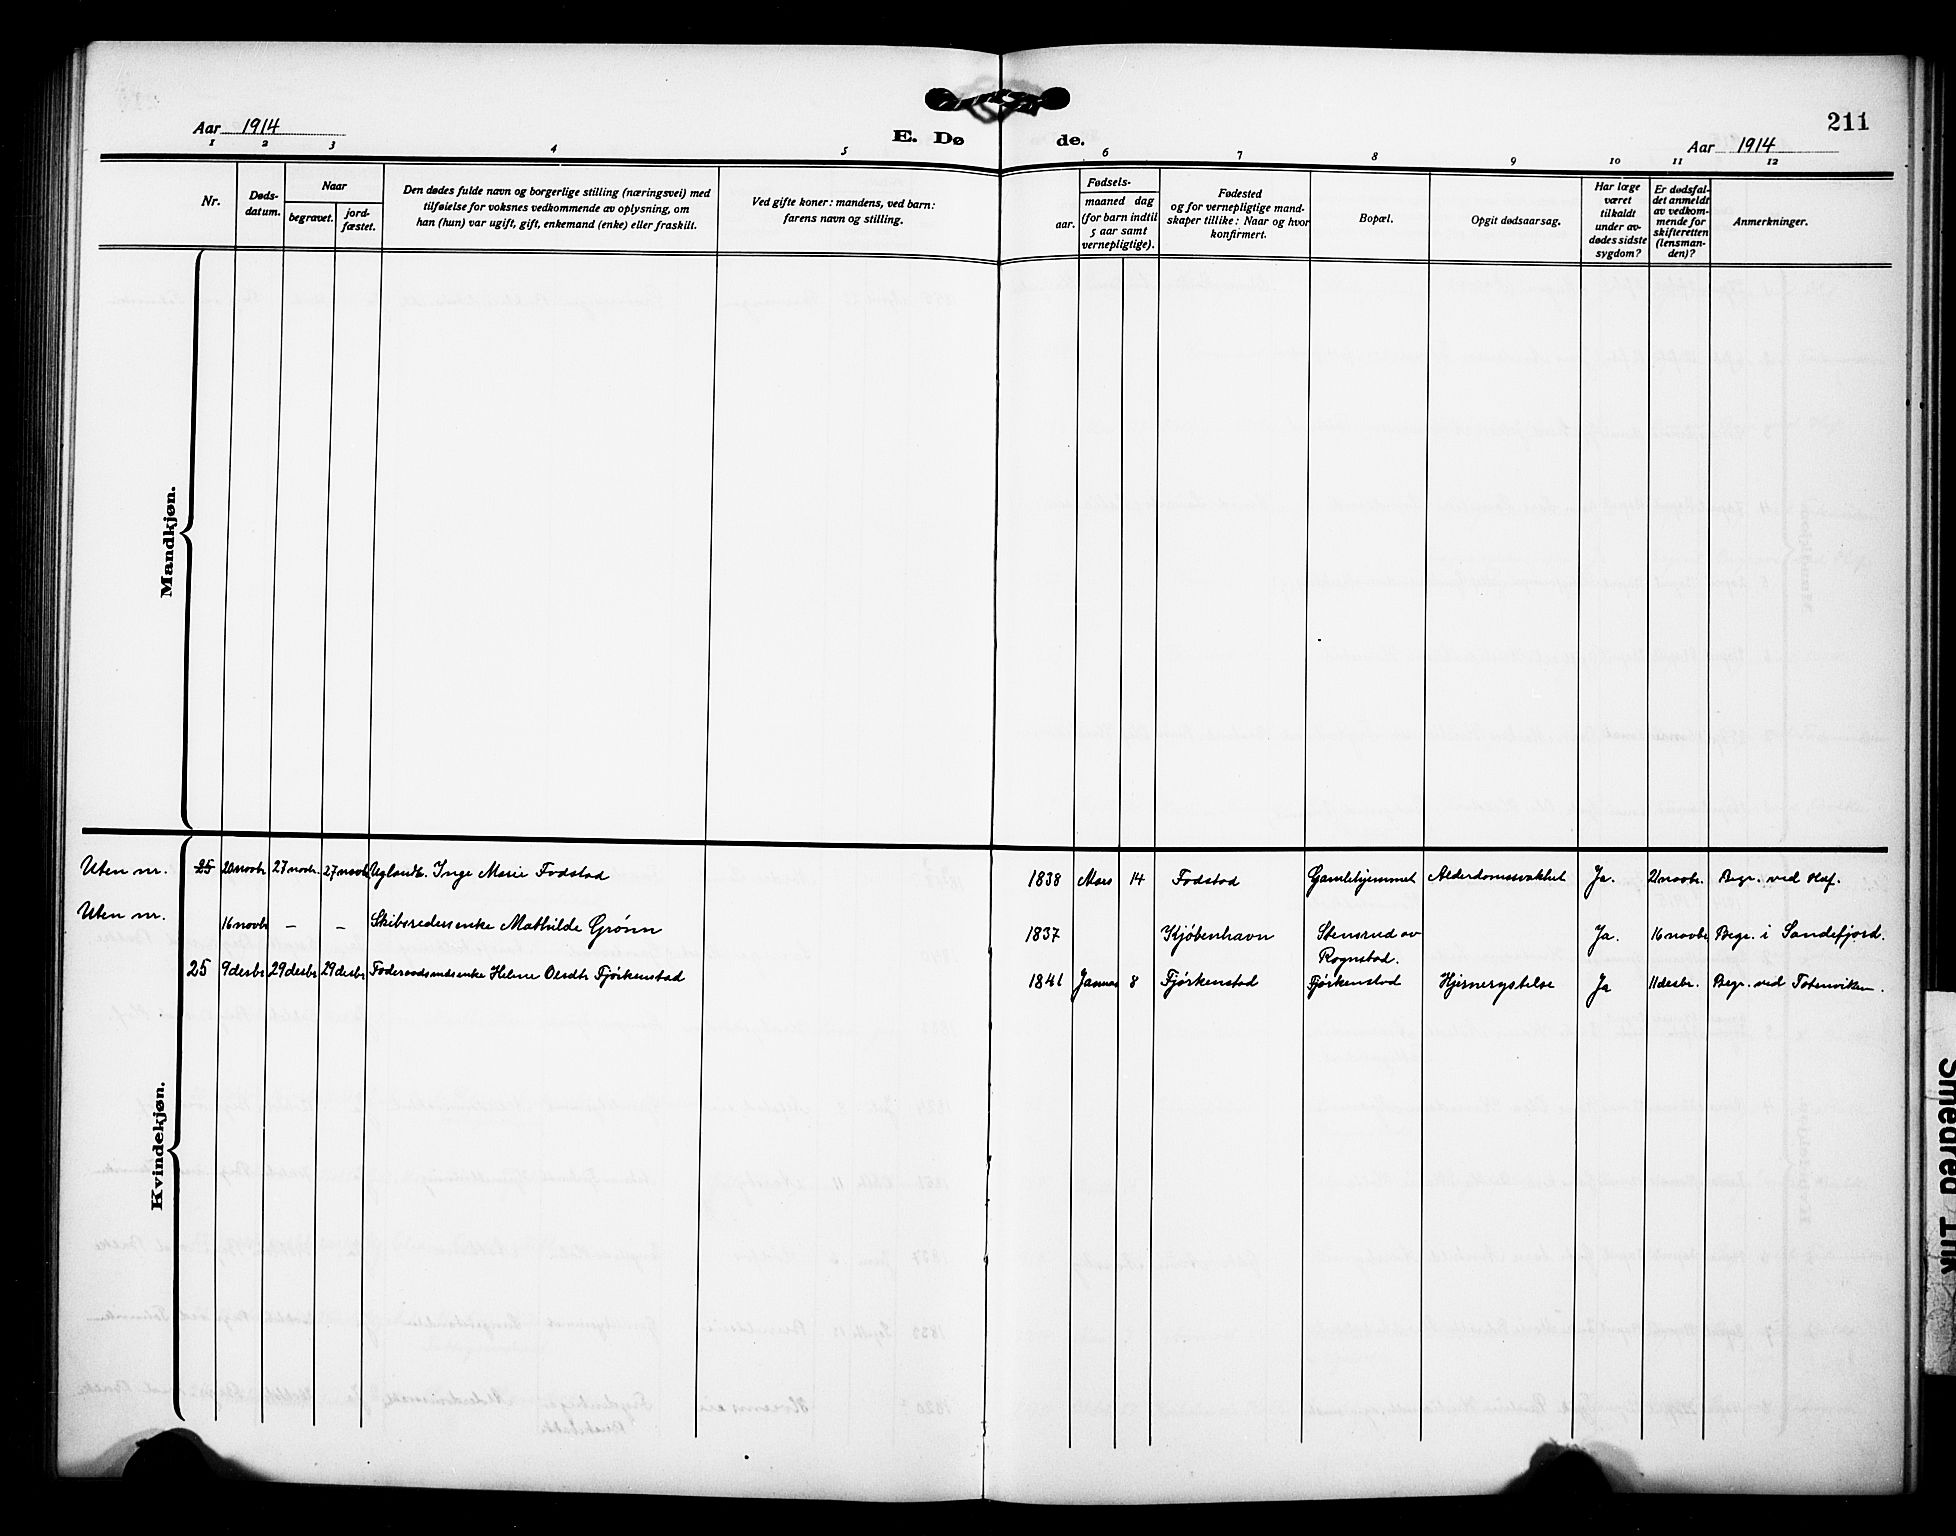 211
Aar 1914
E. Dø
de.
Aar 1914
1 2 3 4 5 6 7 8 9 10 11 12
Nr.
Døds-
datum.
Naar
begravet.
jord-
fæstet.
Den dødes fulde navn og borgerlige stilling (næringsvei) med
tilføielse for voksnes vedkommende av oplysning, om
han (hun) var ugift, gift, enkemand (enke) eller fraskilt.
Ved gifte koner: mandens, ved barn:
farens navn og stilling.
Fødsels-
aar.
maaned dag
(for barn indtil
5 aar samt
vernepligtige).
Fødested
og for vernepligtige mand-
skaper tillike: Naar og hvor
konfirmert.
Bopæl.
Opgit dødsaarsag.
Har læge
været
tilkaldt
under av-
dødes sidste
sygdom?
Er dødsfal-
det anmeldt
av vedkom-
mende for
skifteretten
(lensman-
den)?
Anmerkninger.
Mandkjøn.
Kvindekjøn.
Uten nr. 25 20 novbr 27 novbr. 27 novbr Inge Marie Fodstad 1838 Mars 14 Fodstad Gamlehjemmet Alderdomssvakhet Ja. 21 novbr. Begr. ved Hof.
Uten nr. 16 novbr – – Skibsredersenke Mathilde Grønn 1837 Kjøbenhavn Stensrud av Ja. 16 novbr Begr. i Sandefjord.
Rognstad.
25 9 desbr 29 desbr 29 desbr Føderaadsmandsenke Helene Olsdtr Fjørkenstad 1841 Januar 8 Fjørkenstad Fjørkenstad Hjernerystelse Ja 11 desbr. Begr. ved Totenviken.
Smedrød Trik